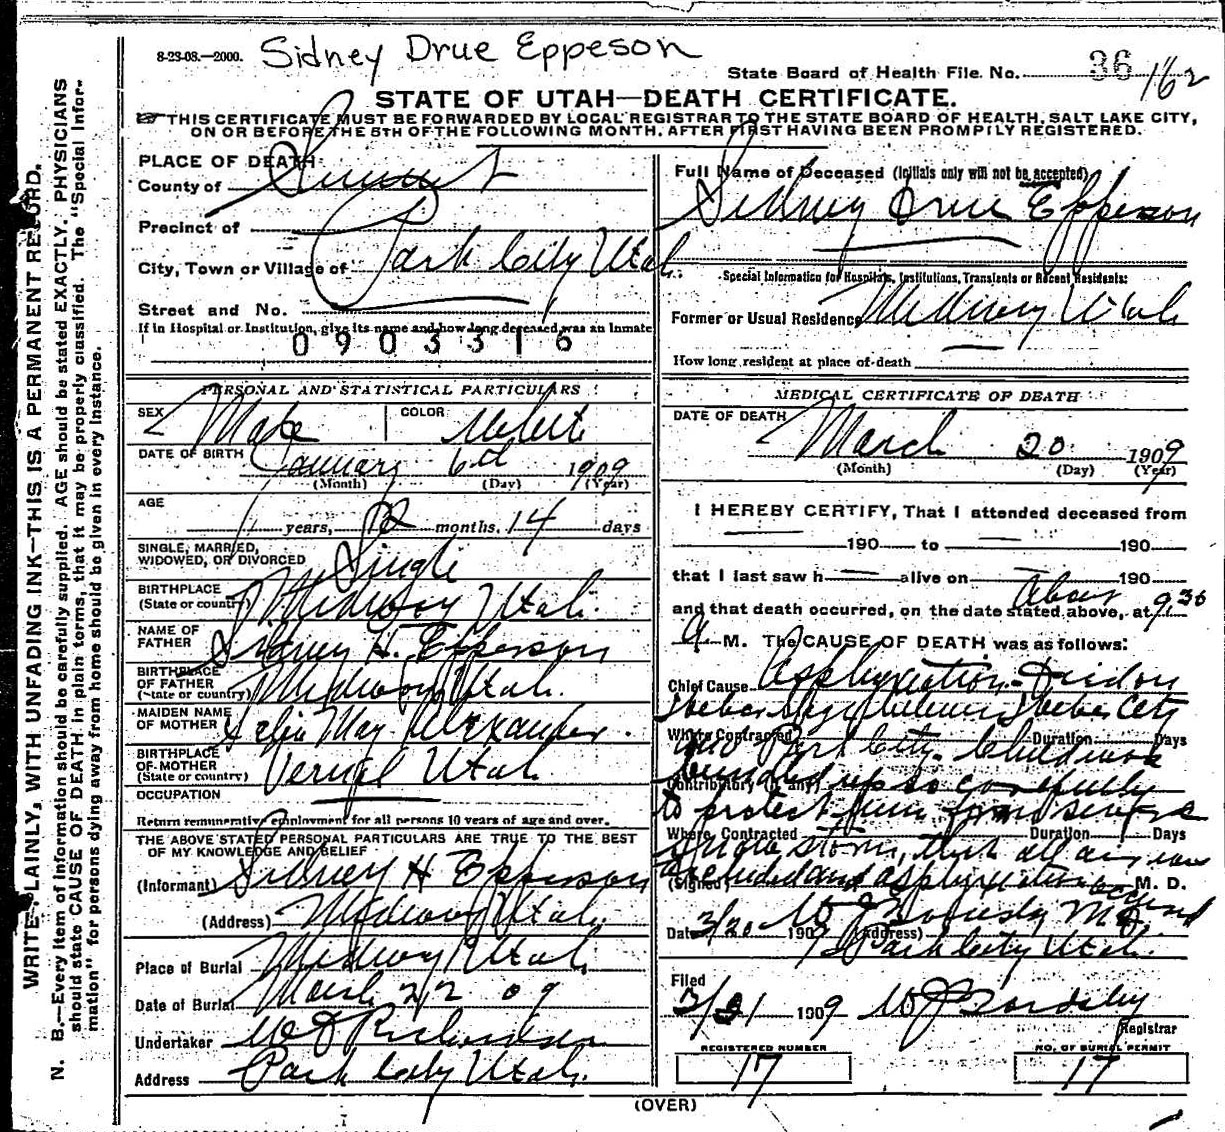 8-23-08.—2000. Sidney Drue Eppeson
State Board of Health File No. 36 162
STATE OF UTAH—DEATH CERTIFICATE.
THIS CERTIFICATE MUST BE FORWARDED BY LOCAL REGISTRAR TO THE STATE BOARD OF HEALTH, SALT LAKE CITY,
ON OR BEFORE THE 5TH OF THE FOLLOWING MONTH, AFTER FIRST HAVING BEEN PROMPILY REGISTERED.
WRITE PLAINLY, WITH UNFADING INK—THIS IS A PERMANENT RECORD.
N. B.—Every item of information should be carefully supplied. AGE should be stated EXACTLY. PHYSICIANS
should state CAUSE OF DEATH in plain terms, that it may be properly classified. The "Special Infor-
mation" for persons dying away from home should be given in every instance.
PLACE OF DEATH
County of Summit
Precinct of
City, Town or Village of Park City Utah
Street and No.
If in Hospital or Institution, give its name and how long deceased was an inmate
0903316
PERSONAL AND STATISTICAL PARTICULARS
SEX Male COLOR White
DATE OF BIRTH January 6th 1909
(Month) (Day) (Year)
AGE years, months, 14 days
SINGLE, MARRIED,
WIDOWED, OR DIVORCED Single
BIRTHPLACE
(State or country) Midway Utah.
NAME OF
FATHER Sidney H. Epperson
BIRTHPLACE
OF FATHER
(State or country) Midway Utah.
MAIDEN NAME
OF MOTHER May Alexander.
BIRTHPLACE
OF MOTHER
(State or country) Vernal Utah
OCCUPATION
Return remunerative employment for all persons 10 years of age and over.
THE ABOVE STATED PERSONAL PARTICULARS ARE TRUE TO THE BEST
OF MY KNOWLEDGE AND BELIEF
(Informant) Sidney H Epperson
(Address) Midway Utah.
Place of Burial Midway Utah
Date of Burial March 22 09
Undertaker W J Richardson
Address Park City Utah.
Full Name of Deceased (Initials only will not be accepted)
Sidney Drue Epperson
Special Information for Hospitals, Institutions, Transients or Recent Residents:
Former or Usual Residence Midway Utah
How long resident at place of death
MEDICAL CERTIFICATE OF DEATH
DATE OF DEATH March 20 1909
(Month) (Day) (Year)
I HEREBY CERTIFY, That I attended deceased from
190 to 190
that I last saw h alive on 190
and that death occurred, on the date stated above, at About 9 30
A M. The CAUSE OF DEATH was as follows:
Chief Cause Asphyxiation - Died on
Heber stage between Heber City
Where Contracted Duration Days
and Park City. Child was
Contributory (if any)
bundled up so carefully
to protect him from severe
Where Contracted Duration Days
snow storm, that all air was
excluded and asphyxiation occured
(Signed) M. D.
Date 3/20 1909 (Address) Park City Utah.
Filed
3/21 1909
Registrar
REGISTERED NUMBER NO. OF BURIAL PERMIT
17 17
(OVER)